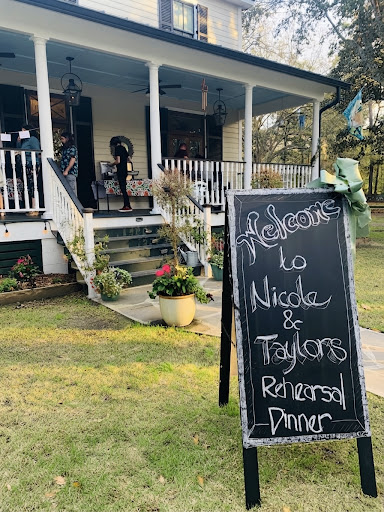 Welcome
to
Nicole
&
Taylors
Rehearsal
Dinner